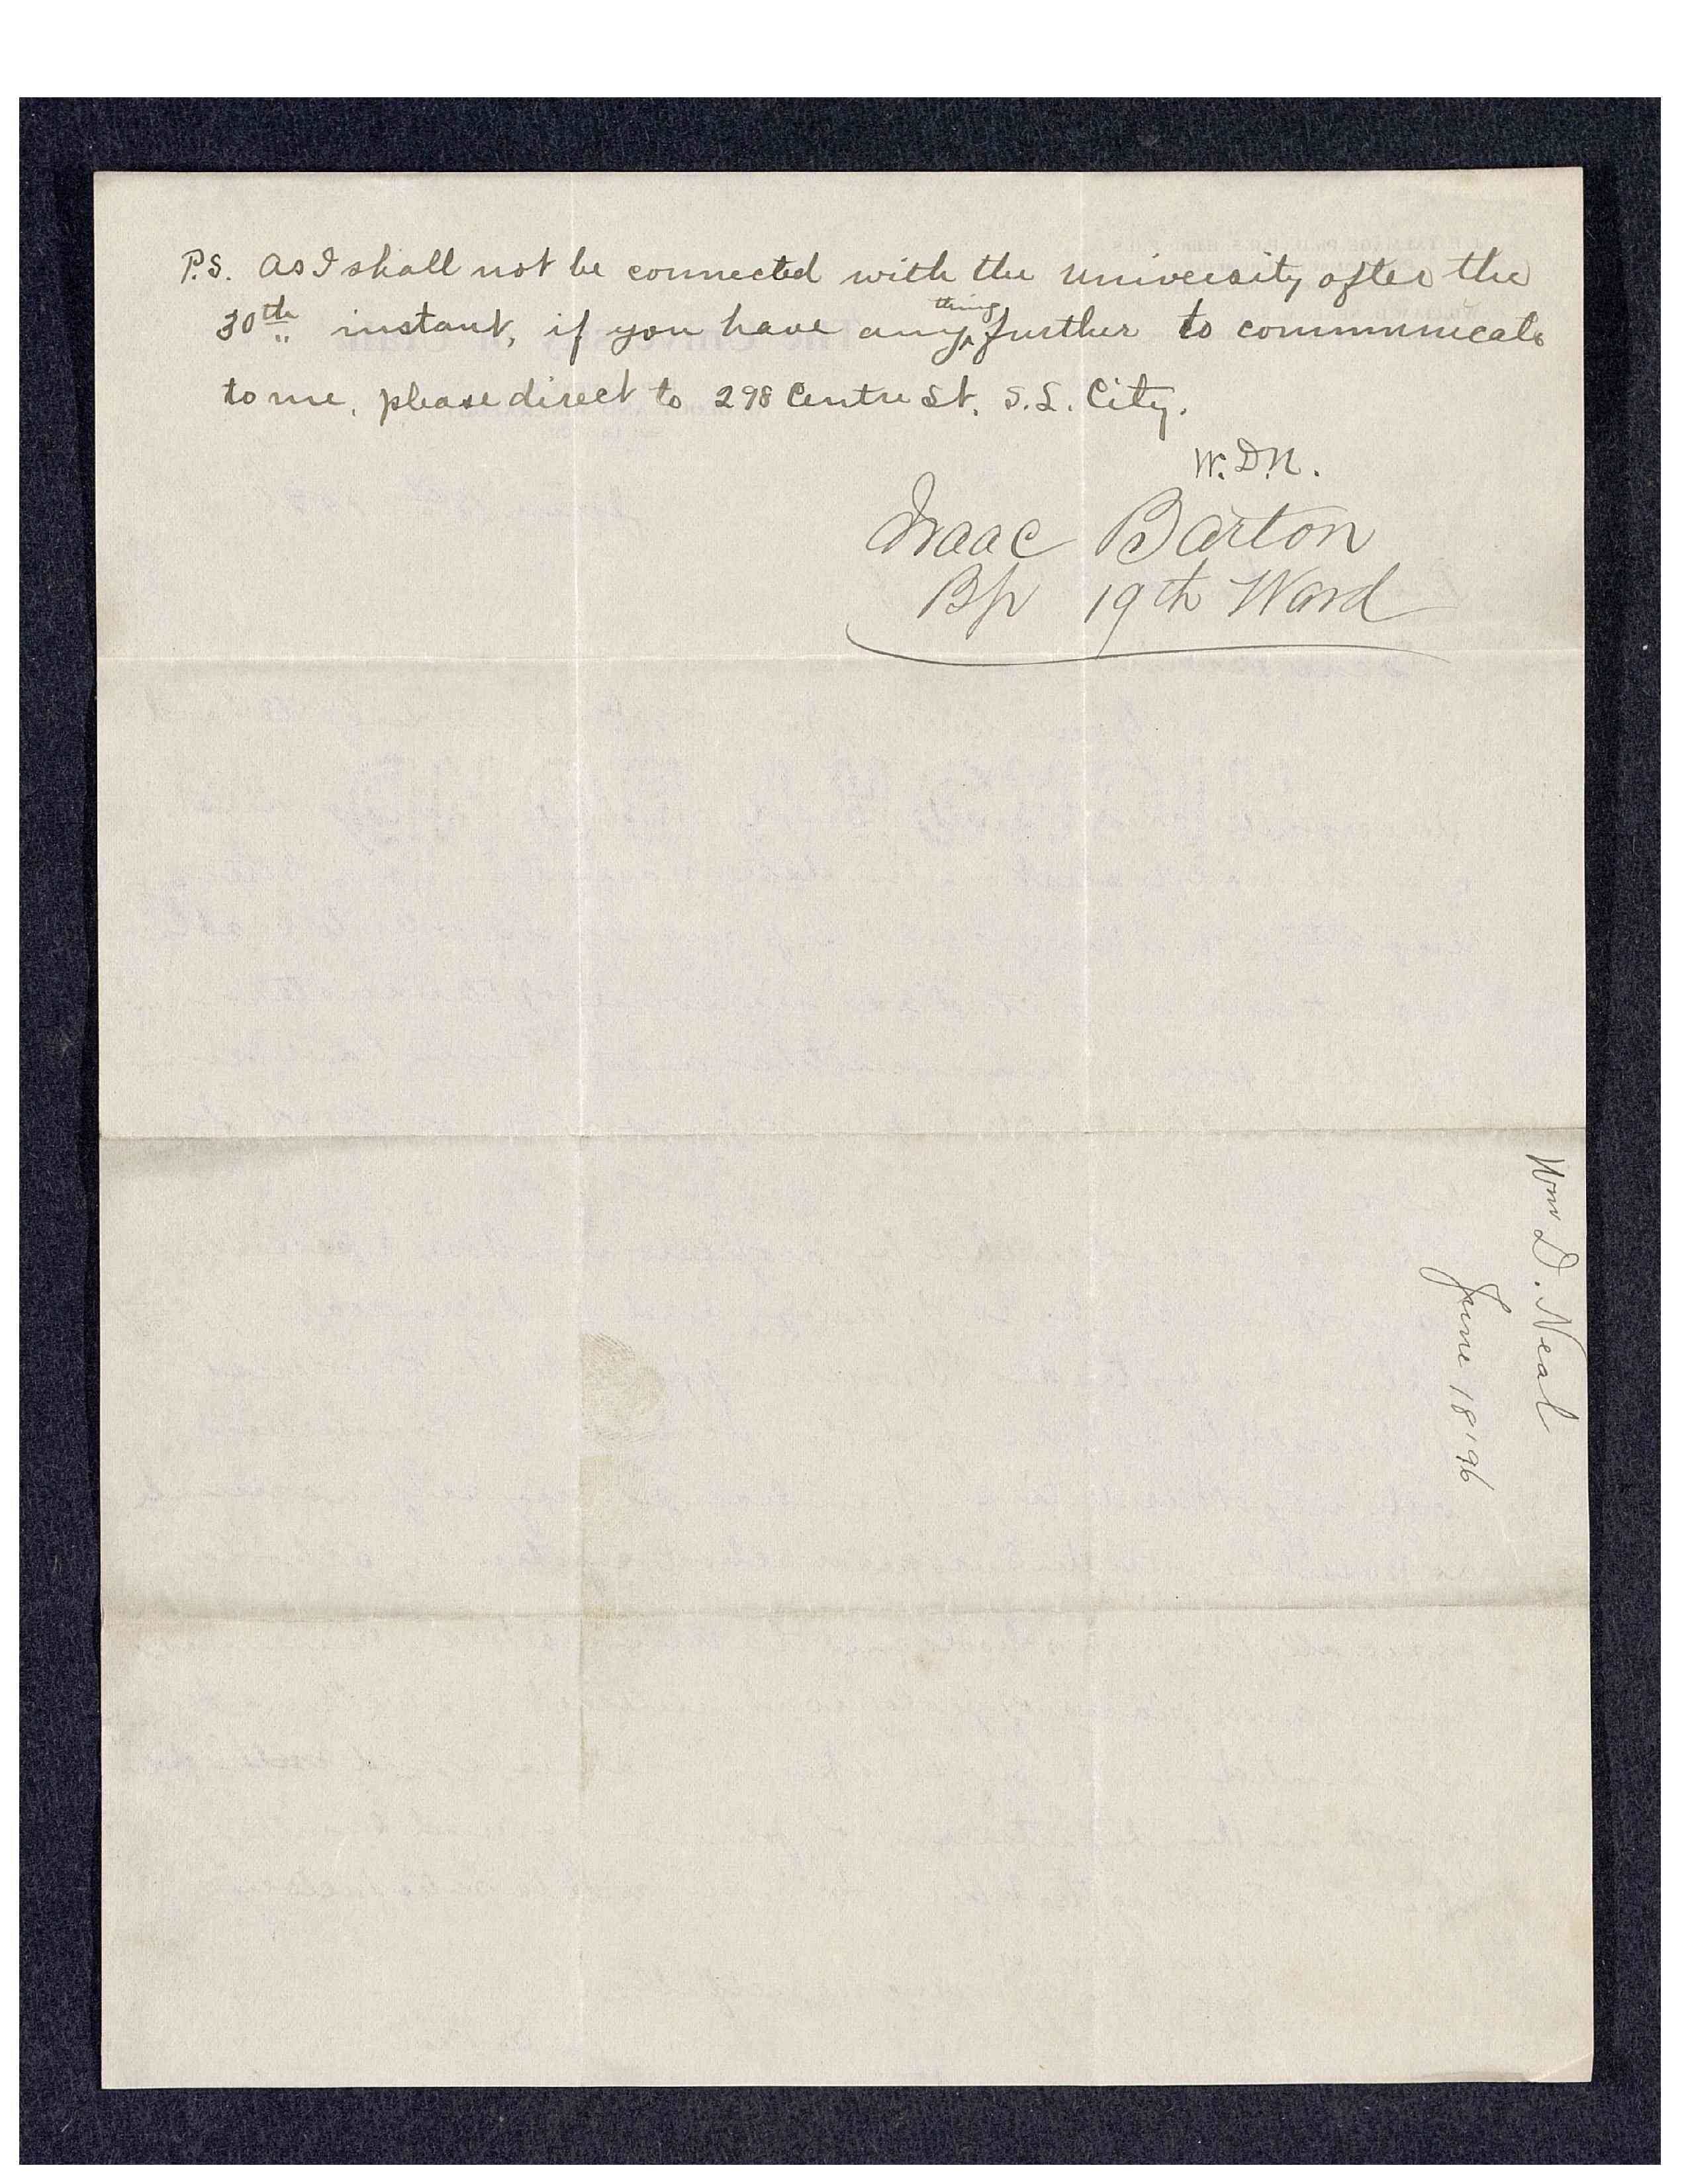 P.S. As I shall not be connected with the University after the
30th instant, if you have anything further to communicate
to me, please direct to 298 Centre St. S.L. City.
W.D.N.
Isaac Barton
Bp 19th Ward
Wm D. Neal
June 18 '96